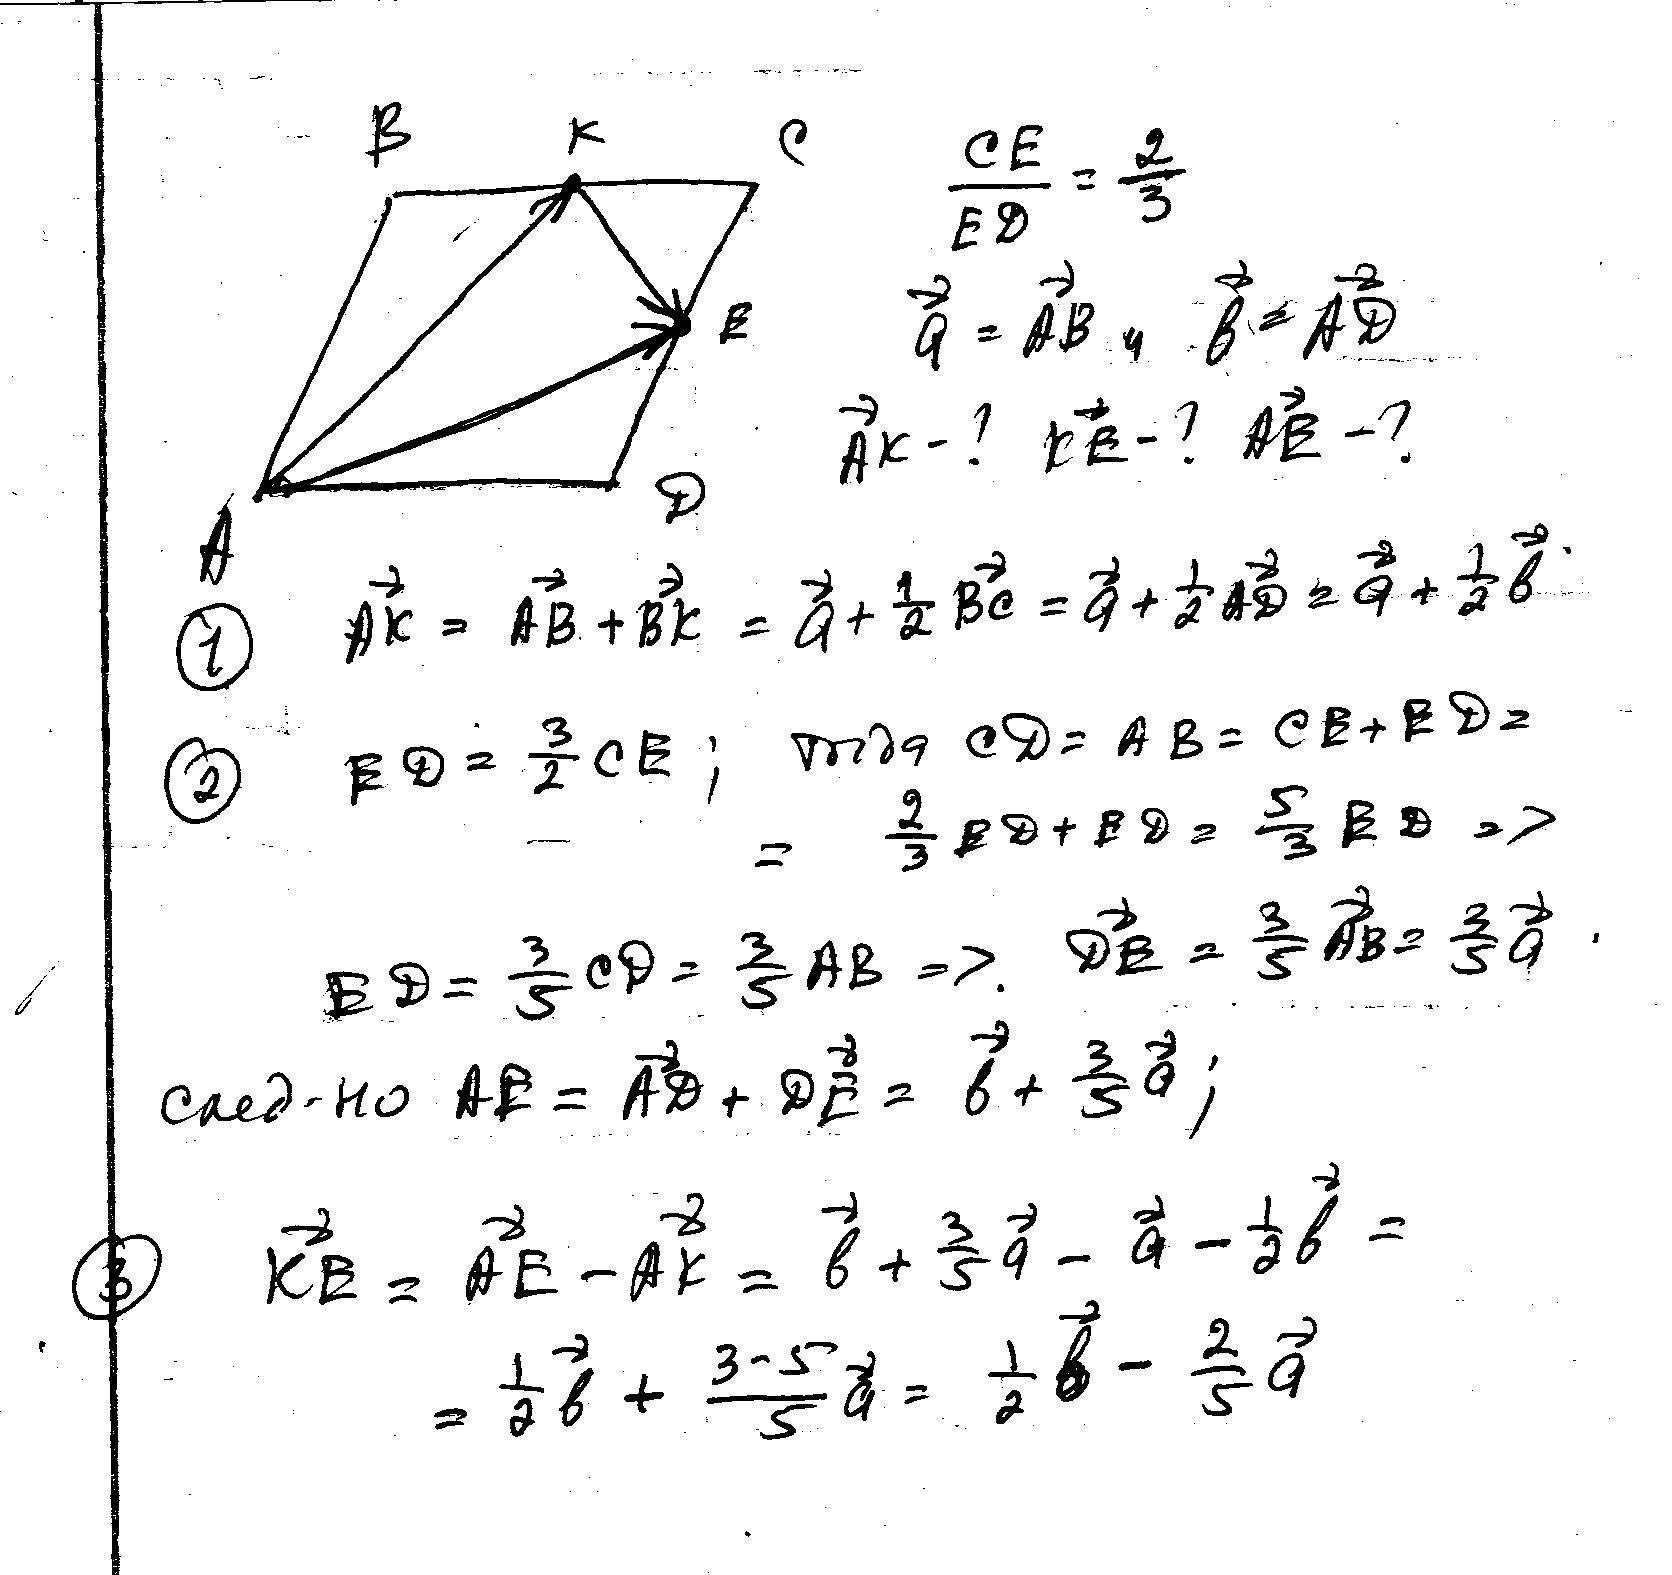 B K C
CE/ED = 2/3
E
a⃗ = AB⃗ и b⃗ = AD⃗
AK⃗ - ? KE⃗ - ? AE⃗ - ?
A D
① AK⃗ = AB⃗ + BK⃗ = a⃗ + 1/2 BC⃗ = a⃗ + 1/2 AD⃗ = a⃗ + 1/2 b⃗.
② ED = 3/2 CE; тогда CD = AB = CE + ED =
= 2/3 ED + ED = 5/3 ED =>
ED = 3/5 CD = 3/5 AB =>. DE⃗ = 3/5 AB⃗ = 3/5 a⃗.
след-но AE = AD⃗ + DE⃗ = b⃗ + 3/5 a⃗;
③ KE⃗ = AE⃗ - AK⃗ = b⃗ + 3/5 a⃗ - a⃗ - 1/2 b⃗ =
= 1/2 b⃗ + (3-5)/5 a⃗ = 1/2 b⃗ - 2/5 a⃗